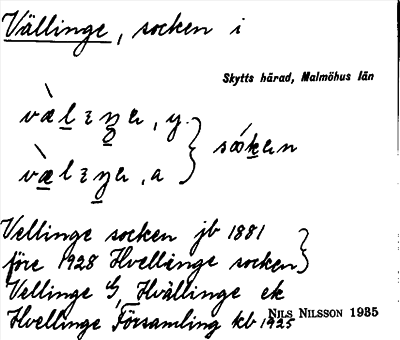 Vällinge, socken i
Skytts härad, Malmöhus län
Vellinge socken jb 1881
före 1928 Hvellinge socken
Vellinge G, Hvällinge ek
Hvellinge Församling kb 1925
NILS NILSSON 1935